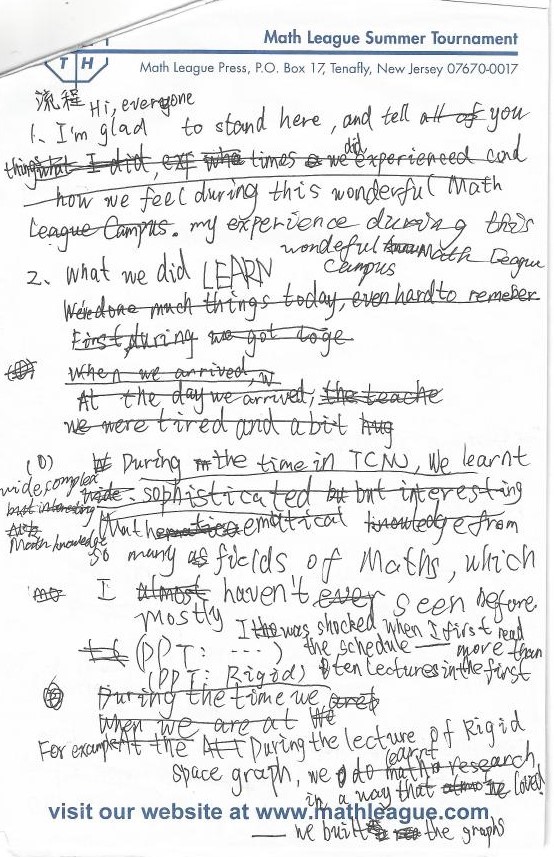 T H
Math League Summer Tournament
Math League Press, P.O. Box 17, Tenafly, New Jersey 07670-0017
流程 Hi, everyone
1、I'm glad to stand here, and tell all of you
did
thing what I did, times we experienced and
how we feel during this wonderful Math
League Campus. my experience during this
wondeful Math League
Campus
2、What we did LEARN
We've done much things today, even hard to remeber
First, during we got toge
When we arrived, w
At the day we arrived, the teache
we were tired and a bit hug
(0) During the time in TCNJ, We learnt
wide complex
but interesting
Math knowledge
wide. sophisticated but but interesting
Mathematical knowledge from
so many as fields of Maths, which
I almost haven't ever seen before
mostly
I was shocked when I first read
(PPT: ....) the schedule — more than
(PPT: Rigid) ten lectures in the first
During the time we are
When we are at the
For example At the At During the lecture of Rigid
learnt
space graph, we do math research
in a way that we loved
visit our website at www.mathleague.com
— we built the graphs